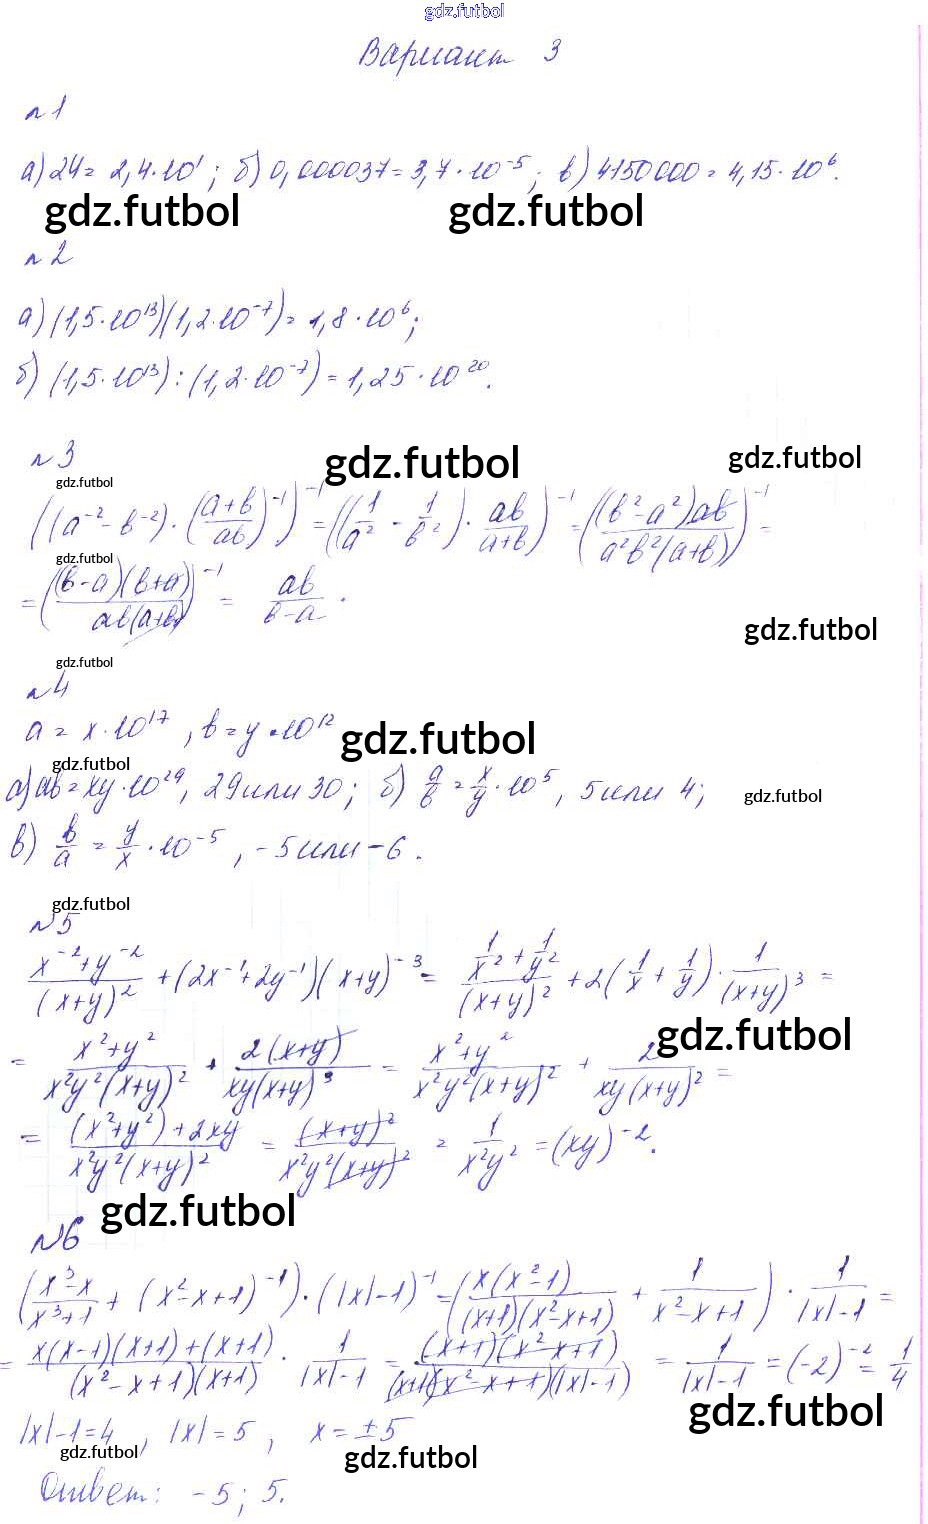 gdz.futbol
Вариант 3
№1
а) 24 = 2,4·10¹; б) 0,000037 = 3,7·10⁻⁵; в) 4150000 = 4,15·10⁶.
gdz.futbol gdz.futbol
№2
а) (1,5·10¹³)(1,2·10⁻⁷) = 1,8·10⁶;
б) (1,5·10¹³) : (1,2·10⁻⁷) = 1,25·10²⁰.
№3
gdz.futbol gdz.futbol
gdz.futbol
((a⁻² - b⁻²)·((a+b)/ab)⁻¹)⁻¹ = ((1/a² - 1/b²)·ab/(a+b))⁻¹ = ((b²-a²)ab/(a²b²(a+b)))⁻¹ =
gdz.futbol
= ((b-a)(b+a)/(ab(a+b)))⁻¹ = ab/(b-a).
gdz.futbol
gdz.futbol
№4
a = x·10¹⁷, b = y·10¹²
gdz.futbol
gdz.futbol
а) ab = xy·10²⁹, 29 или 30; б) a/b = x/y·10⁵, 5 или 4;
gdz.futbol
в) b/a = y/x·10⁻⁵, -5 или -6.
gdz.futbol
№5
(x⁻²+y⁻²)/(x+y)² + (2x⁻¹+2y⁻¹)(x+y)⁻³ = (1/x² + 1/y²)/(x+y)² + 2(1/x + 1/y)·1/(x+y)³ =
gdz.futbol
= (x²+y²)/(x²y²(x+y)²) + 2(x+y)/(xy(x+y)³) = (x²+y²)/(x²y²(x+y)²) + 2/(xy(x+y)²) =
= ((x²+y²)+2xy)/(x²y²(x+y)²) = (x+y)²/(x²y²(x+y)²) = 1/(x²y²) = (xy)⁻².
gdz.futbol
№6
((x³-x)/(x³+1) + (x²-x+1)⁻¹)·(|x|-1)⁻¹ = (x(x²-1)/((x+1)(x²-x+1)) + 1/(x²-x+1))·1/(|x|-1) =
= (x(x-1)(x+1)+(x+1))/((x²-x+1)(x+1))·1/(|x|-1) = (x+1)(x²-x+1)/((x+1)(x²-x+1)(|x|-1)) = 1/(|x|-1) = (-2)⁻² = 1/4
gdz.futbol
|x|-1=4, |x|=5, x=±5
gdz.futbol gdz.futbol
Ответ: -5; 5.